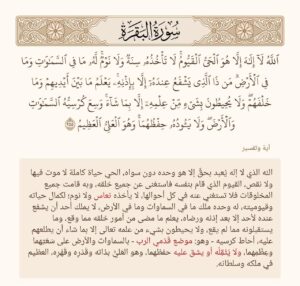 سُورَةُ البَقَرَةِ
ٱللَّهُ لَآ إِلَٰهَ إِلَّا هُوَ ٱلْحَىُّ ٱلْقَيُّومُ ۚ لَا تَأْخُذُهُۥ سِنَةٌ وَلَا نَوْمٌ ۚ لَّهُۥ مَا فِى ٱلسَّمَٰوَٰتِ وَمَا
فِى ٱلْأَرْضِ ۗ مَن ذَا ٱلَّذِى يَشْفَعُ عِندَهُۥٓ إِلَّا بِإِذْنِهِۦ ۚ يَعْلَمُ مَا بَيْنَ أَيْدِيهِمْ وَمَا
خَلْفَهُمْ ۖ وَلَا يُحِيطُونَ بِشَىْءٍ مِّنْ عِلْمِهِۦٓ إِلَّا بِمَا شَآءَ ۚ وَسِعَ كُرْسِيُّهُ ٱلسَّمَٰوَٰتِ
وَٱلْأَرْضَ ۖ وَلَا يَـُٔودُهُۥ حِفْظُهُمَا ۚ وَهُوَ ٱلْعَلِىُّ ٱلْعَظِيمُ
آية وتفسير
الله الذي لا إله يُعبد بحقٍّ إلا هو وحده دون سواه، الحي حياة كاملة لا موت فيها
ولا نقص، القيوم الذي قام بنفسه فاستغنى عن جميع خلقه، وبه قامت جميع
المخلوقات فلا تستغني عنه في كل أحوالها، لا يأخذه نعاس ولا نوم؛ لكمال حياته
وقيوميته، له وحده ملك ما في السماوات وما في الأرض، لا يملك أحد أن يشفع
عنده لأحد إلا بعد إذنه ورضاه، يعلم ما مضى من أمور خلقه مما وقع، وما
يستقبلونه مما لم يقع، ولا يحيطون بشيء من علمه تعالى إلا بما شاء أن يطلعهم
عليه، أحاط كرسيه - وهو: موضع قدمي الرب - بالسماوات والأرض على سَعَتِهما
وعِظَمِهما، ولا يُثْقِلُه أو يشق عليه حفظهما، وهو العليّ بذاته وقَدْرِه وقهره، العظيم
في ملكه وسلطانه.